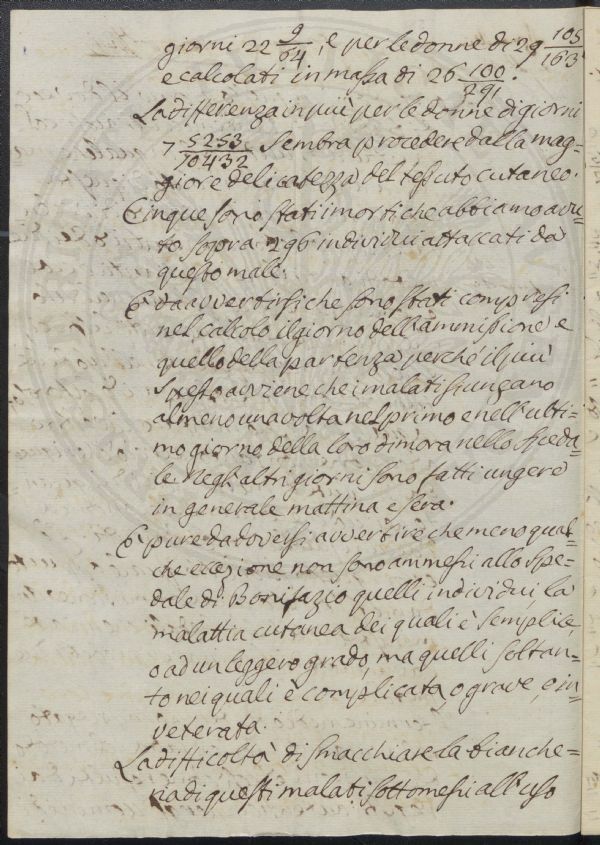 giorni 22 9/64, e per le donne di 29 105/163
e calcolati in massa di 26 100/791.
La differenza in più per le donne di giorni
7 5253/10432 sembra procedere dalla mag=
giore delicatezza del tessuto cutaneo.
Cinque sono stati i morti che abbiamo avu=
to sopra 296 individui attaccati da
questo male.
E' da avvertirsi che sono stati compresi
nel calcolo il giorno dell'ammissione e
quello della partenza perchè il più
spesso avviene che i malati si ungano
almeno una volta nel primo e nell'ulti=
mo giorno della loro dimora nello Speda=
le. Negli altri giorni sono fatti ungere
in generale mattina e sera.
E' pure da doversi avvertire che meno qual=
che eccezione non sono ammessi allo Spe=
dale di Bonifazio quelli individui, la
malattia cutanea dei quali è semplice,
o ad un leggero grado, ma quelli soltan=
to nei quali è complicata, o grave, o in=
veterata.
La difficoltà di smacchiare la bianche=
ria di questi malati sottomessi all'uso